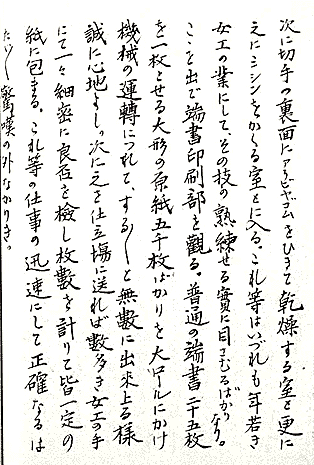 次に切手の裏面にアラビヤゴムをひきて乾燥する室と更に
之にミシンをかくる室とに入る。これ等はいづれも年若き
女工の業にして、その技の熟練せる實に目さむるばかりなり。
こゝを出で端書印刷部を觀る。普通の端書二十五枚
を一枚とせる大形の原紙五千枚ばかりを大ロールにかけ
機械の運轉につれて、する〳〵と無數に出來上る樣
誠に心地よし。次に之を仕立場に送れば數多き女工の手
にて一々細密に良否を檢し枚數を計りて皆一定の
紙に包まる。これ等の仕事の迅速にして正確なるは
たゞ〳〵驚嘆の外なかりき。